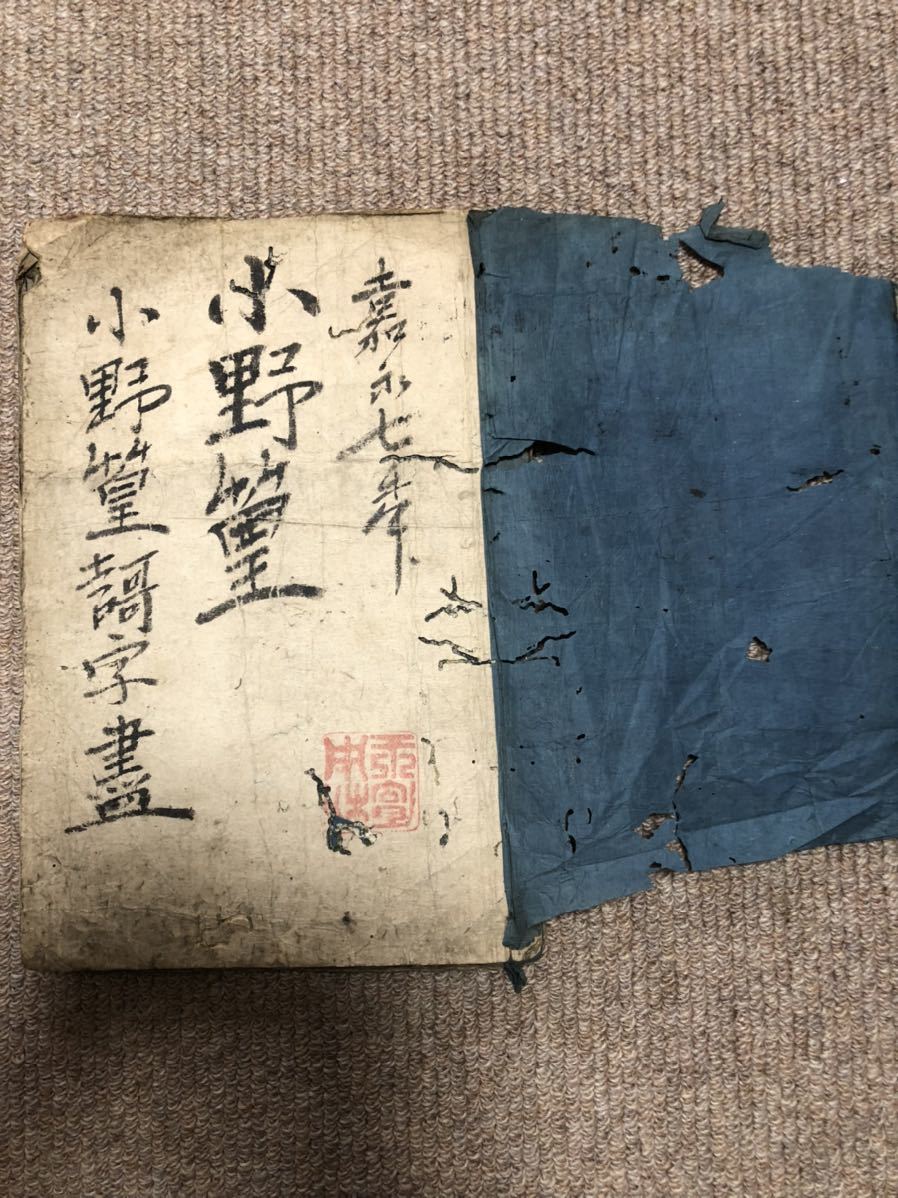 嘉永七年
小野篁
小野篁謌字盡